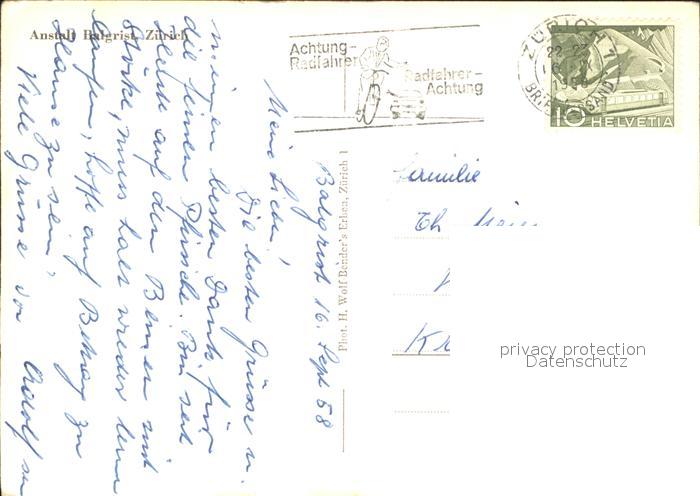 Anstalt Balgrist, Zürich
Achtung-
Radfahrer
Radfahrer-
Achtung
ZÜRICH
22-23
BRIEFVERSAND
10 HELVETIA
Balgrist 16. Sept 58
Meine Lieben!
Die besten Grüsse u.
meinen besten Dank für
die feinen Pfirsiche. Bin seit
heute auf den Beinen mit
Stöcke, muss halt wieder lern
laufen, hoffe auf Bettag zu
Hause zu sein.
Viele Grüsse von Adolf
Phot. H. Wolf Bender's Erben, Zürich 1
Familie
Th
K
privacy protection
Datenschutz